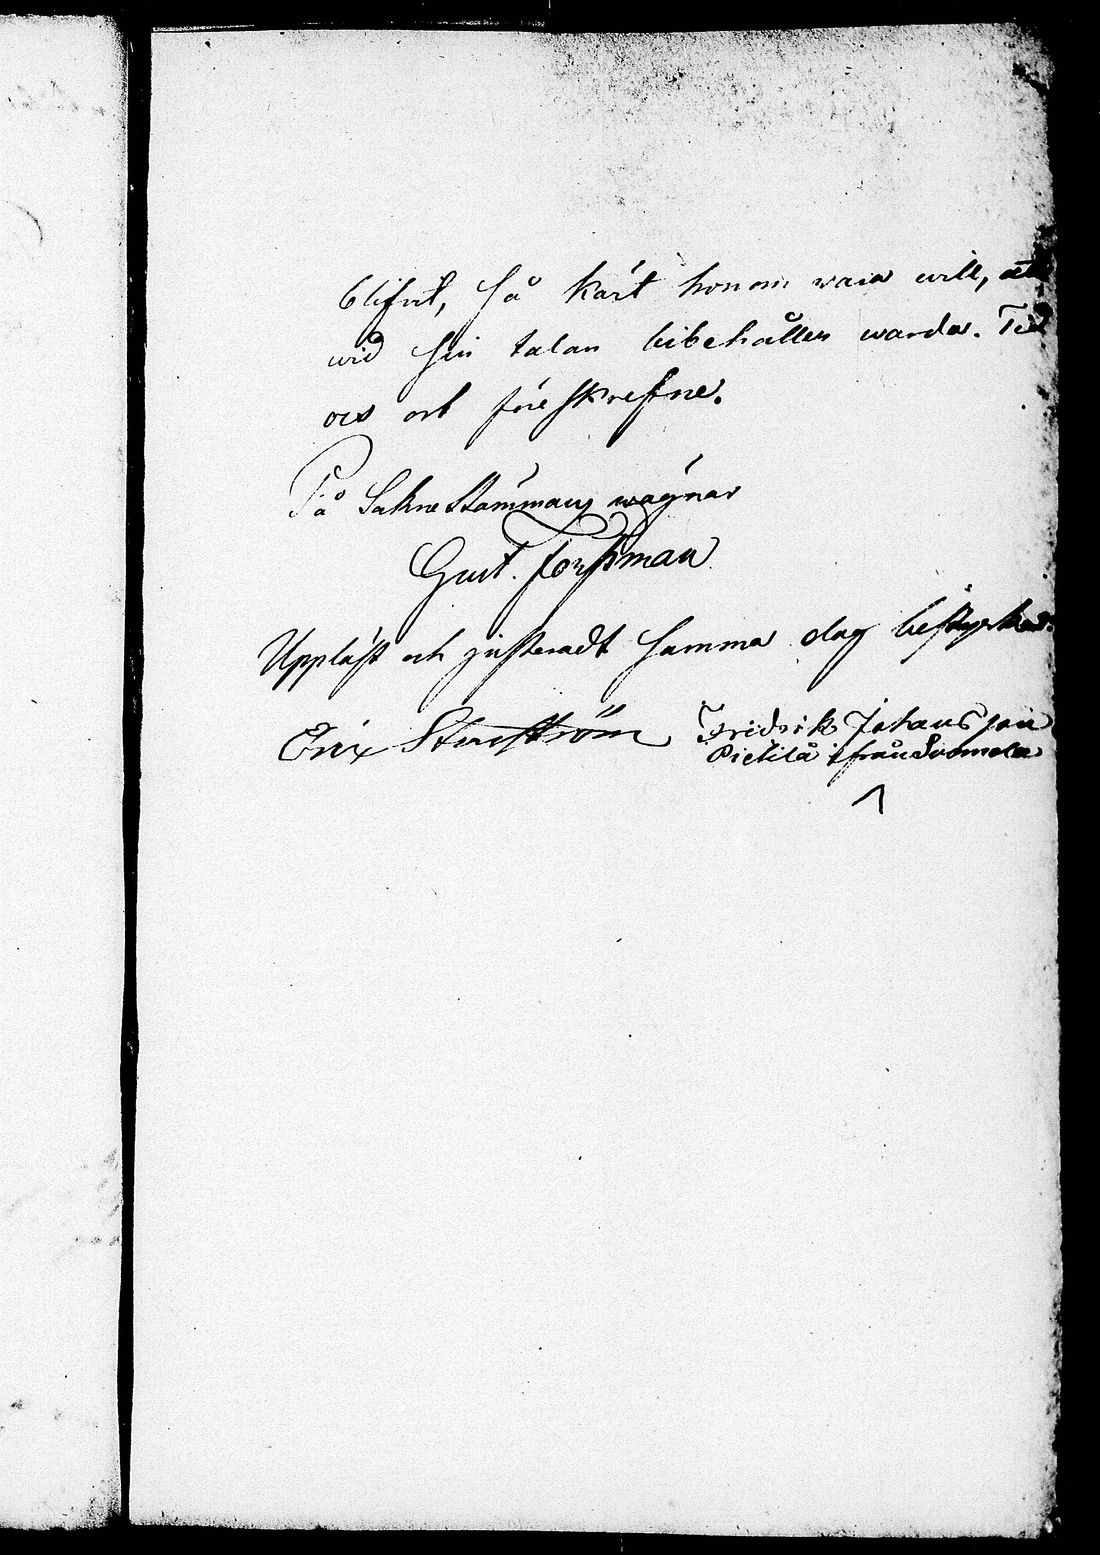 blifvit, så kärt honom vara will, att
wid sin talan bibehållen warda. Tid
och ort föreskrefne.
På Sakne Stämmans wägnar
Gust. Forsman
Uppläst och justeradt samma dag bestyrka:
Eric Fridrik Johansson
Pietilä ifrån Suomela